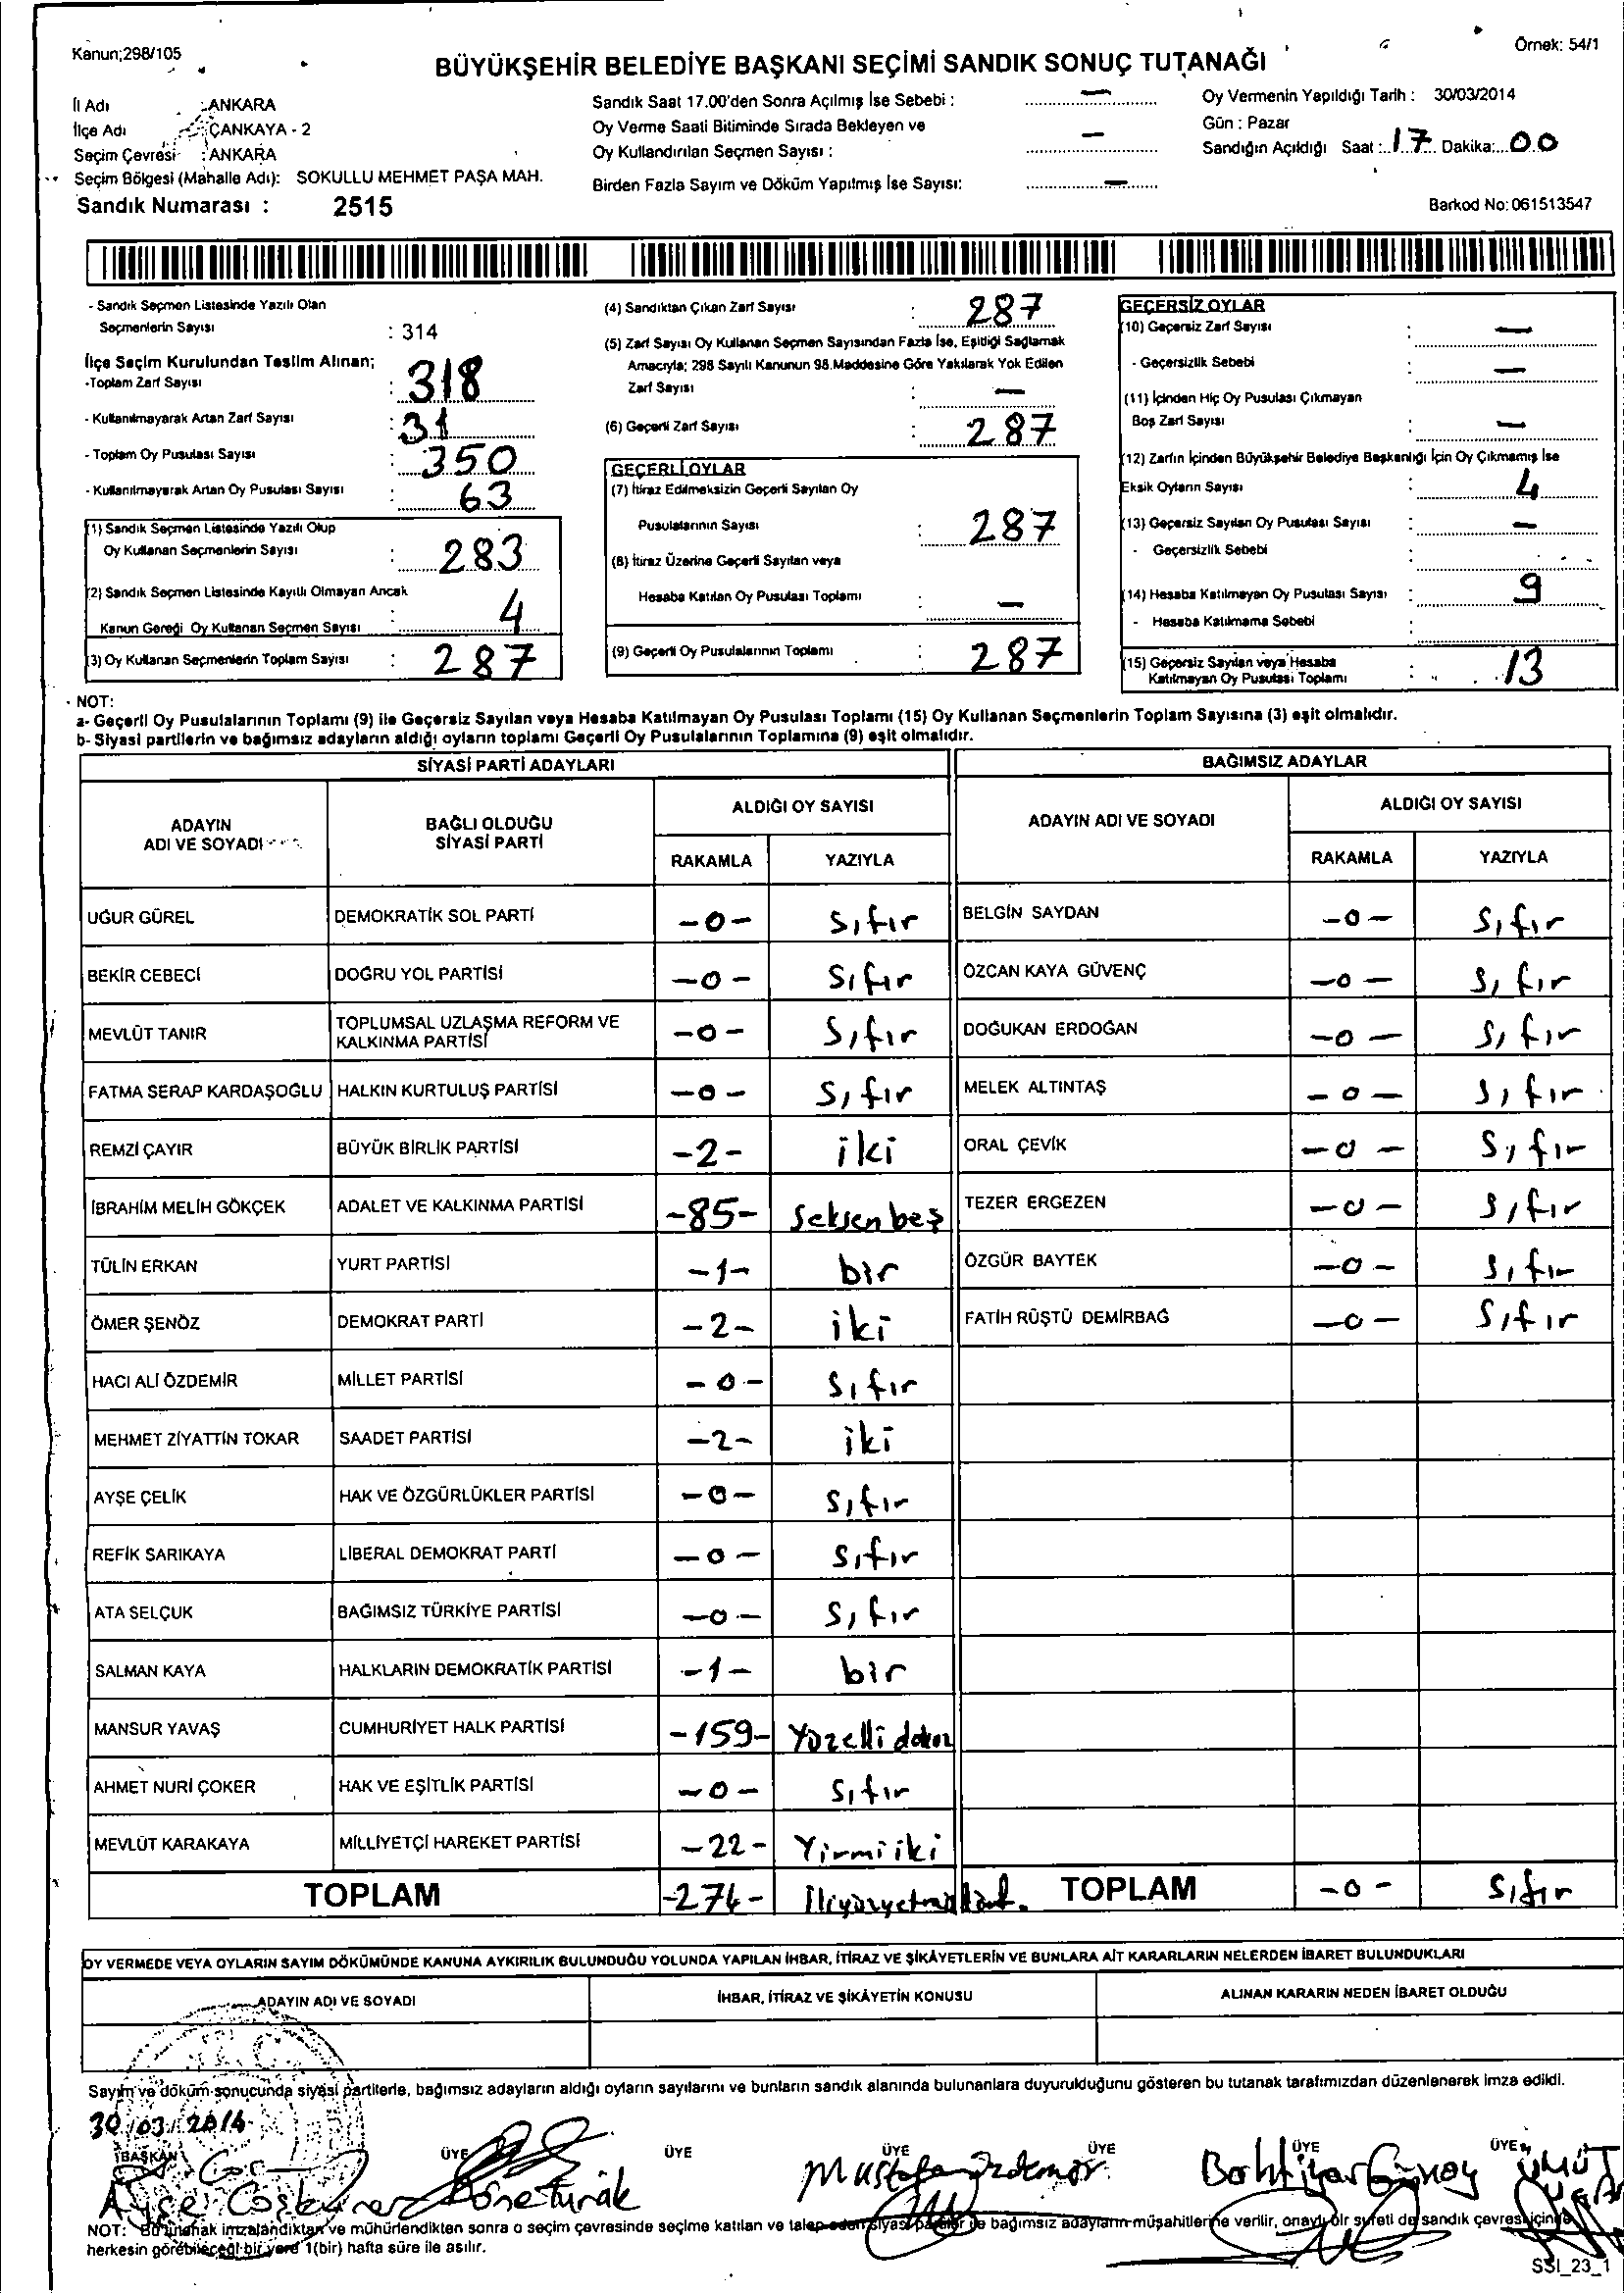 Kanun;298/105
Örnek: 54/1
BÜYÜKŞEHİR BELEDİYE BAŞKANI SEÇİMİ SANDIK SONUÇ TUTANAĞI
İl Adı : ANKARA
İlçe Adı : ÇANKAYA - 2
Seçim Çevresi : ANKARA
Seçim Bölgesi (Mahalle Adı): SOKULLU MEHMET PAŞA MAH.
Sandık Numarası : 2515
Sandık Saat 17.00'den Sonra Açılmış İse Sebebi : —
Oy Verme Saati Bitiminde Sırada Bekleyen ve
Oy Kullandırılan Seçmen Sayısı : —
Birden Fazla Sayım ve Döküm Yapılmış İse Sayısı: —
Oy Vermenin Yapıldığı Tarih : 30/03/2014
Gün : Pazar
Sandığın Açıldığı Saat : 17 Dakika: 00
Barkod No: 061513547
- Sandık Seçmen Listesinde Yazılı Olan
Seçmenlerin Sayısı : 314
İlçe Seçim Kurulundan Teslim Alınan;
-Toplam Zarf Sayısı : 318
- Kullanılmayarak Artan Zarf Sayısı : 31
- Toplam Oy Pusulası Sayısı : 350
- Kullanılmayarak Artan Oy Pusulası Sayısı : 63
(1) Sandık Seçmen Listesinde Yazılı Olup
Oy Kullanan Seçmenlerin Sayısı : 283
(2) Sandık Seçmen Listesinde Kayıtlı Olmayan Ancak
Kanun Gereği Oy Kullanan Seçmen Sayısı : 4
(3) Oy Kullanan Seçmenlerin Toplam Sayısı : 287
(4) Sandıktan Çıkan Zarf Sayısı : 287
(5) Zarf Sayısı Oy Kullanan Seçmen Sayısından Fazla İse, Eşitliği Sağlamak
Amacıyla; 298 Sayılı Kanunun 98.Maddesine Göre Yakılarak Yok Edilen
Zarf Sayısı : —
(6) Geçerli Zarf Sayısı : 287
GEÇERLİ OYLAR
(7) İtiraz Edilmeksizin Geçerli Sayılan Oy
Pusulalarının Sayısı : 287
(8) İtiraz Üzerine Geçerli Sayılan veya
Hesaba Katılan Oy Pusulası Toplamı : —
(9) Geçerli Oy Pusulalarının Toplamı : 287
GEÇERSİZ OYLAR
(10) Geçersiz Zarf Sayısı : —
- Geçersizlik Sebebi : —
(11) İçinden Hiç Oy Pusulası Çıkmayan
Boş Zarf Sayısı : —
(12) Zarfın İçinden Büyükşehir Belediye Başkanlığı İçin Oy Çıkmamış İse
Eksik Oyların Sayısı : 4
(13) Geçersiz Sayılan Oy Pusulası Sayısı : —
- Geçersizlik Sebebi :
(14) Hesaba Katılmayan Oy Pusulası Sayısı : 9
- Hesaba Katılmama Sebebi :
(15) Geçersiz Sayılan veya Hesaba
Katılmayan Oy Pusulası Toplamı : 13
NOT:
a- Geçerli Oy Pusulalarının Toplamı (9) ile Geçersiz Sayılan veya Hesaba Katılmayan Oy Pusulası Toplamı (15) Oy Kullanan Seçmenlerin Toplam Sayısına (3) eşit olmalıdır.
b- Siyasi partilerin ve bağımsız adayların aldığı oyların toplamı Geçerli Oy Pusulalarının Toplamına (9) eşit olmalıdır.
SİYASİ PARTİ ADAYLARI
BAĞIMSIZ ADAYLAR
ADAYIN ADI VE SOYADI
BAĞLI OLDUĞU SİYASİ PARTİ
ALDIĞI OY SAYISI
RAKAMLA YAZIYLA
ADAYIN ADI VE SOYADI
ALDIĞI OY SAYISI
RAKAMLA YAZIYLA
UĞUR GÜREL DEMOKRATİK SOL PARTİ -0- Sıfır BELGİN SAYDAN -0- Sıfır
BEKİR CEBECİ DOĞRU YOL PARTİSİ -0- Sıfır ÖZCAN KAYA GÜVENÇ -0- Sıfır
MEVLÜT TANIR TOPLUMSAL UZLAŞMA REFORM VE KALKINMA PARTİSİ -0- Sıfır DOĞUKAN ERDOĞAN -0- Sıfır
FATMA SERAP KARDAŞOĞLU HALKIN KURTULUŞ PARTİSİ -0- Sıfır MELEK ALTINTAŞ -0- Sıfır
REMZİ ÇAYIR BÜYÜK BİRLİK PARTİSİ -2- iki ORAL ÇEVİK -0- Sıfır
İBRAHİM MELİH GÖKÇEK ADALET VE KALKINMA PARTİSİ -85- Seksen beş TEZER ERGEZEN -0- Sıfır
TÜLİN ERKAN YURT PARTİSİ -1- bir ÖZGÜR BAYTEK -0- Sıfır
ÖMER ŞENÖZ DEMOKRAT PARTİ -2- iki FATİH RÜŞTÜ DEMİRBAĞ -0- Sıfır
HACI ALİ ÖZDEMİR MİLLET PARTİSİ -0- Sıfır
MEHMET ZİYATTİN TOKAR SAADET PARTİSİ -2- iki
AYŞE ÇELİK HAK VE ÖZGÜRLÜKLER PARTİSİ -0- Sıfır
REFİK SARIKAYA LİBERAL DEMOKRAT PARTİ -0- Sıfır
ATA SELÇUK BAĞIMSIZ TÜRKİYE PARTİSİ -0- Sıfır
SALMAN KAYA HALKLARIN DEMOKRATİK PARTİSİ -1- bir
MANSUR YAVAŞ CUMHURİYET HALK PARTİSİ -159- Yüzelli dokuz
AHMET NURİ ÇOKER HAK VE EŞİTLİK PARTİSİ -0- Sıfır
MEVLÜT KARAKAYA MİLLİYETÇİ HAREKET PARTİSİ -22- Yirmi iki
TOPLAM -274- TOPLAM -0- Sıfır
OY VERMEDE VEYA OYLARIN SAYIM DÖKÜMÜNDE KANUNA AYKIRILIK BULUNDUĞU YOLUNDA YAPILAN İHBAR, İTİRAZ VE ŞİKÂYETLERİN VE BUNLARA AİT KARARLARIN NELERDEN İBARET BULUNDUKLARI
ADAYIN ADI VE SOYADI
İHBAR, İTİRAZ VE ŞİKÂYETİN KONUSU
ALINAN KARARIN NEDEN İBARET OLDUĞU
Sayım ve döküm sonucunda siyasi partilerle, bağımsız adayların aldığı oyların sayılarını ve bunların sandık alanında bulunanlara duyurulduğunu gösteren bu tutanak tarafımızdan düzenlenerek imza edildi.
30/03/2014
BAŞKAN ÜYE ÜYE ÜYE ÜYE ÜYE ÜYE
Ayşe Mustafa Özdemir Bahtiyar Günay ÜMÜT
NOT: Bu tutanak imzalandıktan ve mühürlendikten sonra o seçim çevresinde seçime katılan ve talep eden siyasi partiler ile bağımsız adayların müşahitlerine verilir, onaylı bir sureti de sandık çevresi içinde
herkesin görebileceği bir yere 1(bir) hafta süre ile asılır.
SSI_23_1